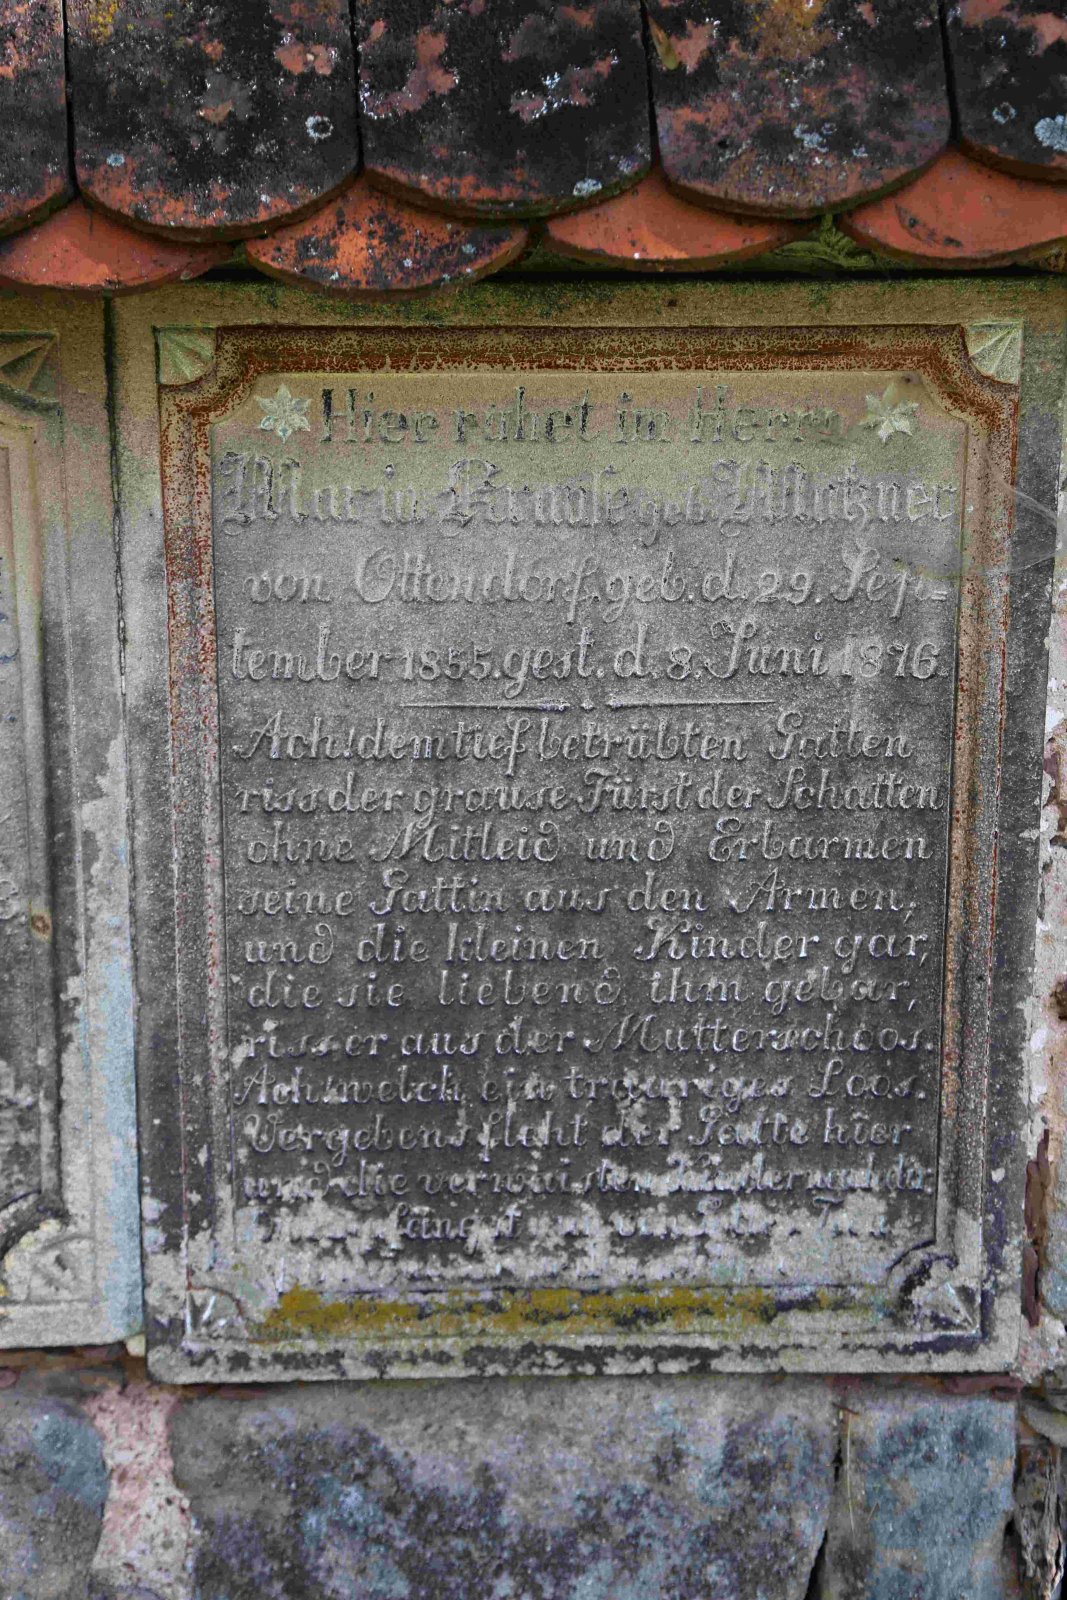 Hier ruhet im Herrn
Maria Krause geb.
von Ottendorf. geb. d. 29. Sep=
tember 1855. gest. d. 8. Juni 1876.
Ach! dem tief betrübten Gatten
riss der grause Fürst der Schatten
ohne Mitleid und Erbarmen
seine Gattin aus den Armen,
und die kleinen Kinder gar,
die sie liebend ihm gebar,
riss er aus der Mutterschoos.
Ach! welch ein trauriges Loos.
Vergebens fleht der Gatte hier
und die verwaisten Kinder nach dir